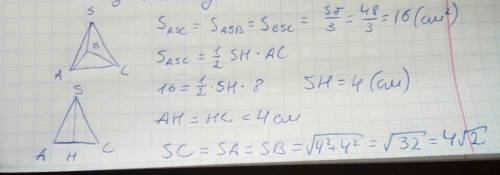 S
B
A
C
S_ASC = S_ASB = S_BSC = Sб/3 = 48/3 = 16 (см²)
S_ASC = 1/2 SH · AC
16 = 1/2 · SH · 8   SH = 4 (см)
S
A
H
C
AH = HC = 4 см
SC = SA = SB = √4²+4² = √32 = 4√2